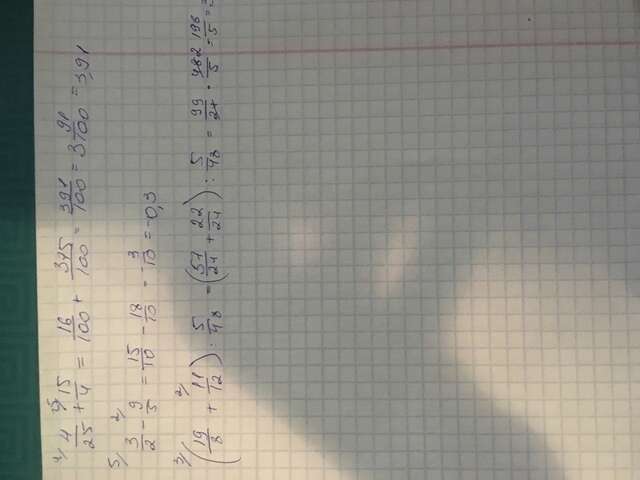 4/ 4/25 + 15/4 = 16/100 + 375/100 = 391/100 = 3 91/100 = 3,91
5/ 3/2 - 2/ 9/5 = 15/10 - 18/10 = -3/10 = -0,3
3/ (19/8 + 2/ 11/12) : 5/48 = (57/24 + 22/24) : 5/48 = 99/24 · 48 2/5 = 196/5 =